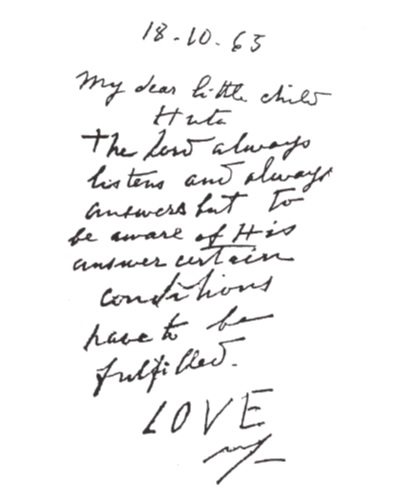 18-10-65
My dear little child
Huta
The Lord always
listens and always
answers but to
be aware of His
answer certain
conditions
have to be
fulfilled.
LOVE